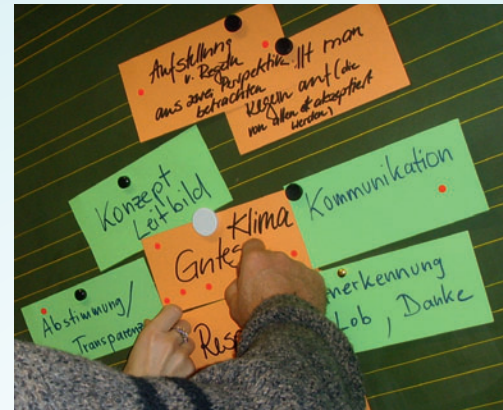 Aufstellung
v. Regeln
aus zwei Perspektiv
betrachten
llt man
Regeln auf (die
von allen akzeptiert
werden)
Konzept
Leitbild
Kommunikation
Gutes Klima
Abstimmung/
Transparenz
nerkennung
Lob, Danke
Res